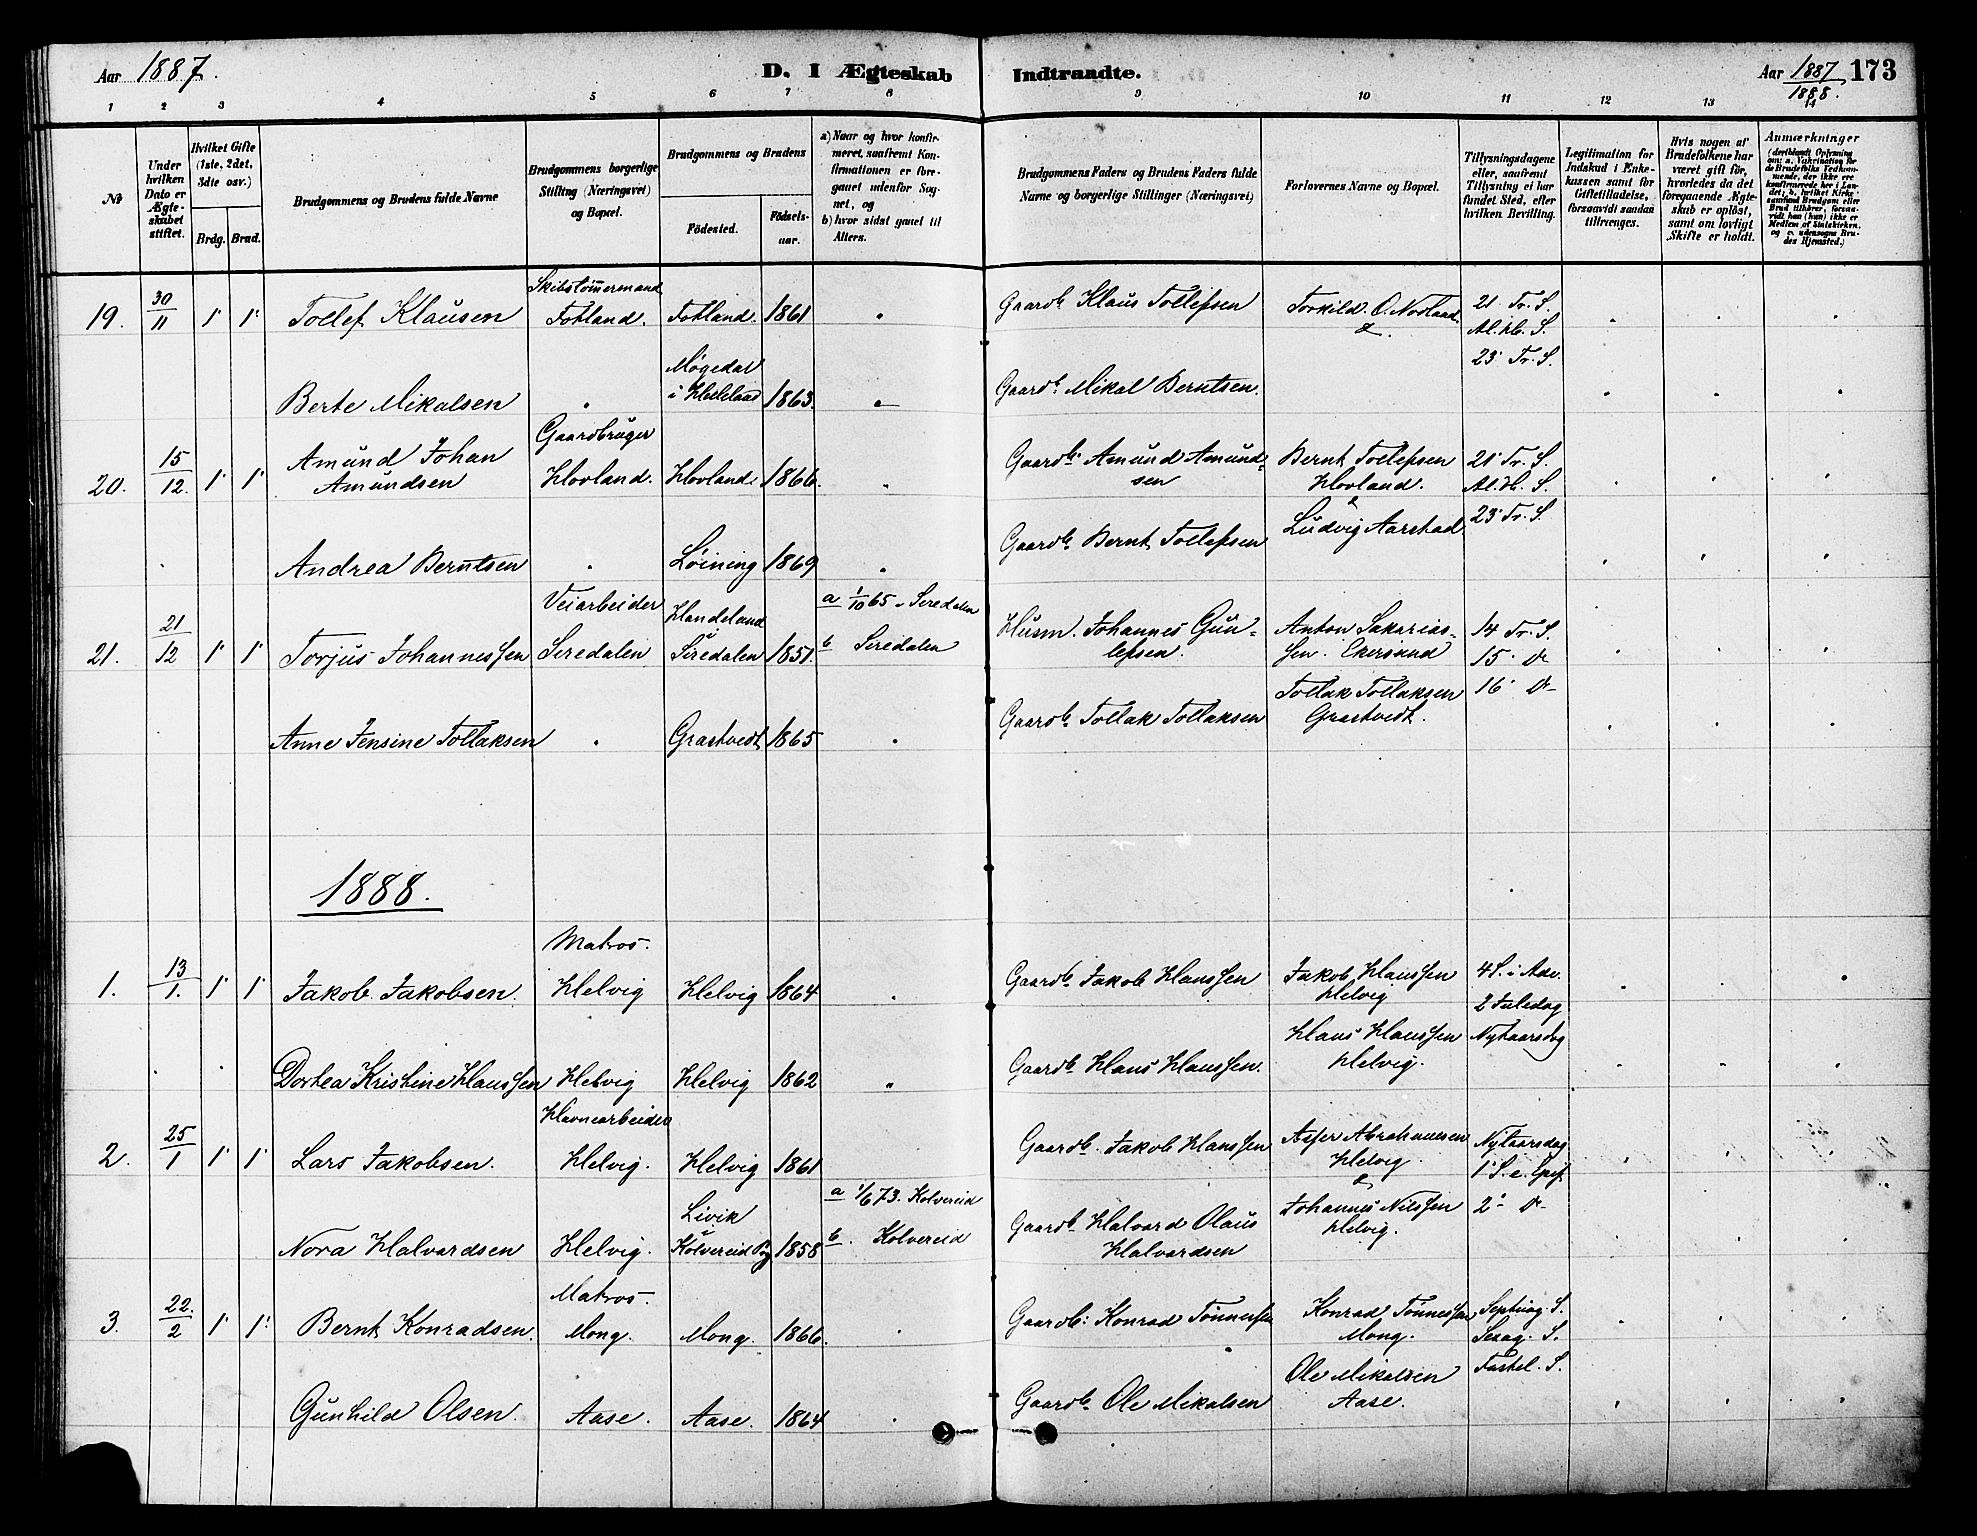 Aar 1887.
D. I Ægteskab
Indtraadte.
Aar 1887/1888. 173
1 2 3 4 5 6 7 8 9 10 11 12 13 14
№
Under hvilken Dato er Ægteskabet stiftet.
Hvilket Gifte (1ste, 2det, 3dte osv.)
Brdg. Brud.
Brudgommens og Brudens fulde Navne
Brudgommens borgerlige Stilling (Næringsvei) og Bopæl.
Brudgommens og Brudens
Fødested.
Fødselsaar.
a) Naar og hvor konfirmeret, saafremt Konfirmationen er foregaaet udenfor Sognet, og
b) hvor sidst gaaet til Alters.
Brudgommens Faders og Brudens Faders fulde Navne og borgerlige Stillinger (Næringsvei)
Forlovernes Navne og Bopæl.
Tillysningsdagene eller, saafremt Tillysning ei har fundet Sted, efter hvilken Bevilling.
Legitimation for Indskud i Enkekassen samt for Giftetilladelse, forsaavidt saadan tiltrænges.
Hvis nogen af Brudefolkene har været gift før, hvorledes da det foregaaende Ægteskab er opløst, samt om lovligt Skifte er holdt.
Anmærkninger
19. 30/11 1' 1' Tollef Klausen Skibstømmermand Fotland. Fotland. 1861 Gaardb. Klaus Tollefsen Torkild. O. Nodland & 21 Tr. S. Al. H. S. 23' Tr. S.
Berte Mikalsen Møgedal i Helleland 1863. Gaardb. Mikal Berntsen.
20. 15/12. 1' 1' Amund Johan Amundsen Gaardbruger Hovland. Hovland. 1866. Gaardb. Amund Amundsen Bernt Tollefsen Hovland. & Ludvig Aarstad 21' Tr. S. Al. H. S. 23' Tr. S.
Andrea Berntsen Løining 1869 Gaardb. Bernt Tollefsen
21. 21/12 1' 1' Torjus Johannessen Veiarbeider Siredalen Handeland Siredalen 1851. a 1/10 65 Siredalen b Siredalen Husm. Johannes Gunlefsen. Anton Sakariassen. Ekersund 14 Tr. S. 15. Do
Anne Jensine Tollaksen Grastvedt 1865 Gaardb. Tollak Tollaksen Tollak Tollaksen Grastvedt. 16' Do
1888.
1. 13/1. 1' 1' Jakob Jakobsen. Matros. Helvig Helvig 1864 Gaardb. Jakob Hanssen Jakob Hanssen Helvig 4 S. i Adv. 2 Juledag
Dortea Kristine Hanssen Helvig Helvig 1862 Gaardb. Hans Hanssen. Hans Hanssen Helvig. Nytaarsdag
2. 25/1 1' 1' Lars Jakobsen. Havnearbeider Helvig. Helvig 1861 Gaardb. Jakob Hanssen Asser Abrahamsen Helvig. & Nytaarsdag 1' S. e. Epif.
Nora Halvardsen Helvig. Kolvereid Pg 1858 a 1/6 73. Kolvereid b. Kolvereid Gaardb. Halvard Olaus Halvardsen Johannes Nilssen Helvig. 2' Do
3. 22./2 1' 1' Bernt Konradsen. Matros. Mong. Mong. 1866. Gaardb: Konrad Tønnessen Konrad Tønnessen Mong. Septuag. S. Sexag. S.
Gunhild Olsen. Aase. Aase. 1864 Gaardb. Ole Mikalsen Ole Mikalsen Aase. Fastel. S.